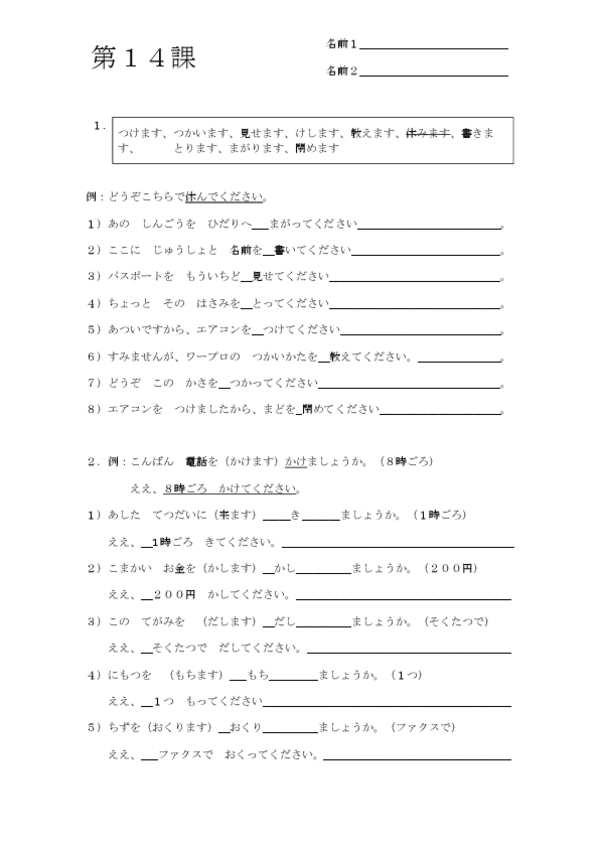 第１４課
名前１
名前２
１．
つけます、つかいます、見せます、けします、教えます、休みます、書きま
す、　　　とります、まがります、閉めます
例：どうぞこちらで休んでください。
１）あの　しんごうを　ひだりへ＿＿まがってください＿＿＿＿＿＿＿＿。
２）ここに　じゅうしょと　名前を＿書いてください＿＿＿＿＿＿＿＿。
３）パスポートを　もういちど＿見せてください＿＿＿＿＿＿＿＿。
４）ちょっと　その　はさみを＿とってください＿＿＿＿＿＿＿＿。
５）あついですから、エアコンを＿つけてください＿＿＿＿＿＿＿＿。
６）すみませんが、ワープロの　つかいかたを＿教えてください。＿＿＿＿＿。
７）どうぞ　この　かさを＿つかってください＿＿＿＿＿＿＿＿。
８）エアコンを　つけましたから、まどを_閉めてください＿＿＿＿＿＿＿。
２．例：こんばん　電話を（かけます）かけましょうか。（８時ごろ）
ええ、８時ごろ　かけてください。
１）あした　てつだいに（来ます）＿＿き＿＿＿ましょうか。（１時ごろ）
ええ、＿1時ごろ　きてください。＿＿＿＿＿＿＿＿
２）こまかい　お金を（かします）＿かし＿＿＿＿ましょうか。（２００円）
ええ、＿２００円　かしてください。＿＿＿＿＿＿＿＿
３）この　てがみを　（だします）＿だし＿＿＿＿ましょうか。（そくたつで）
ええ、＿そくたつで　だしてください。＿＿＿＿＿＿＿＿
４）にもつを　（もちます）＿＿もち＿＿＿＿ましょうか。（１つ）
ええ、＿１つ　もってください＿＿＿＿＿＿＿＿
５）ちずを（おくります）＿おくり＿＿＿＿ましょうか。（ファクスで）
ええ、＿＿ファクスで　おくってください。＿＿＿＿＿＿＿＿